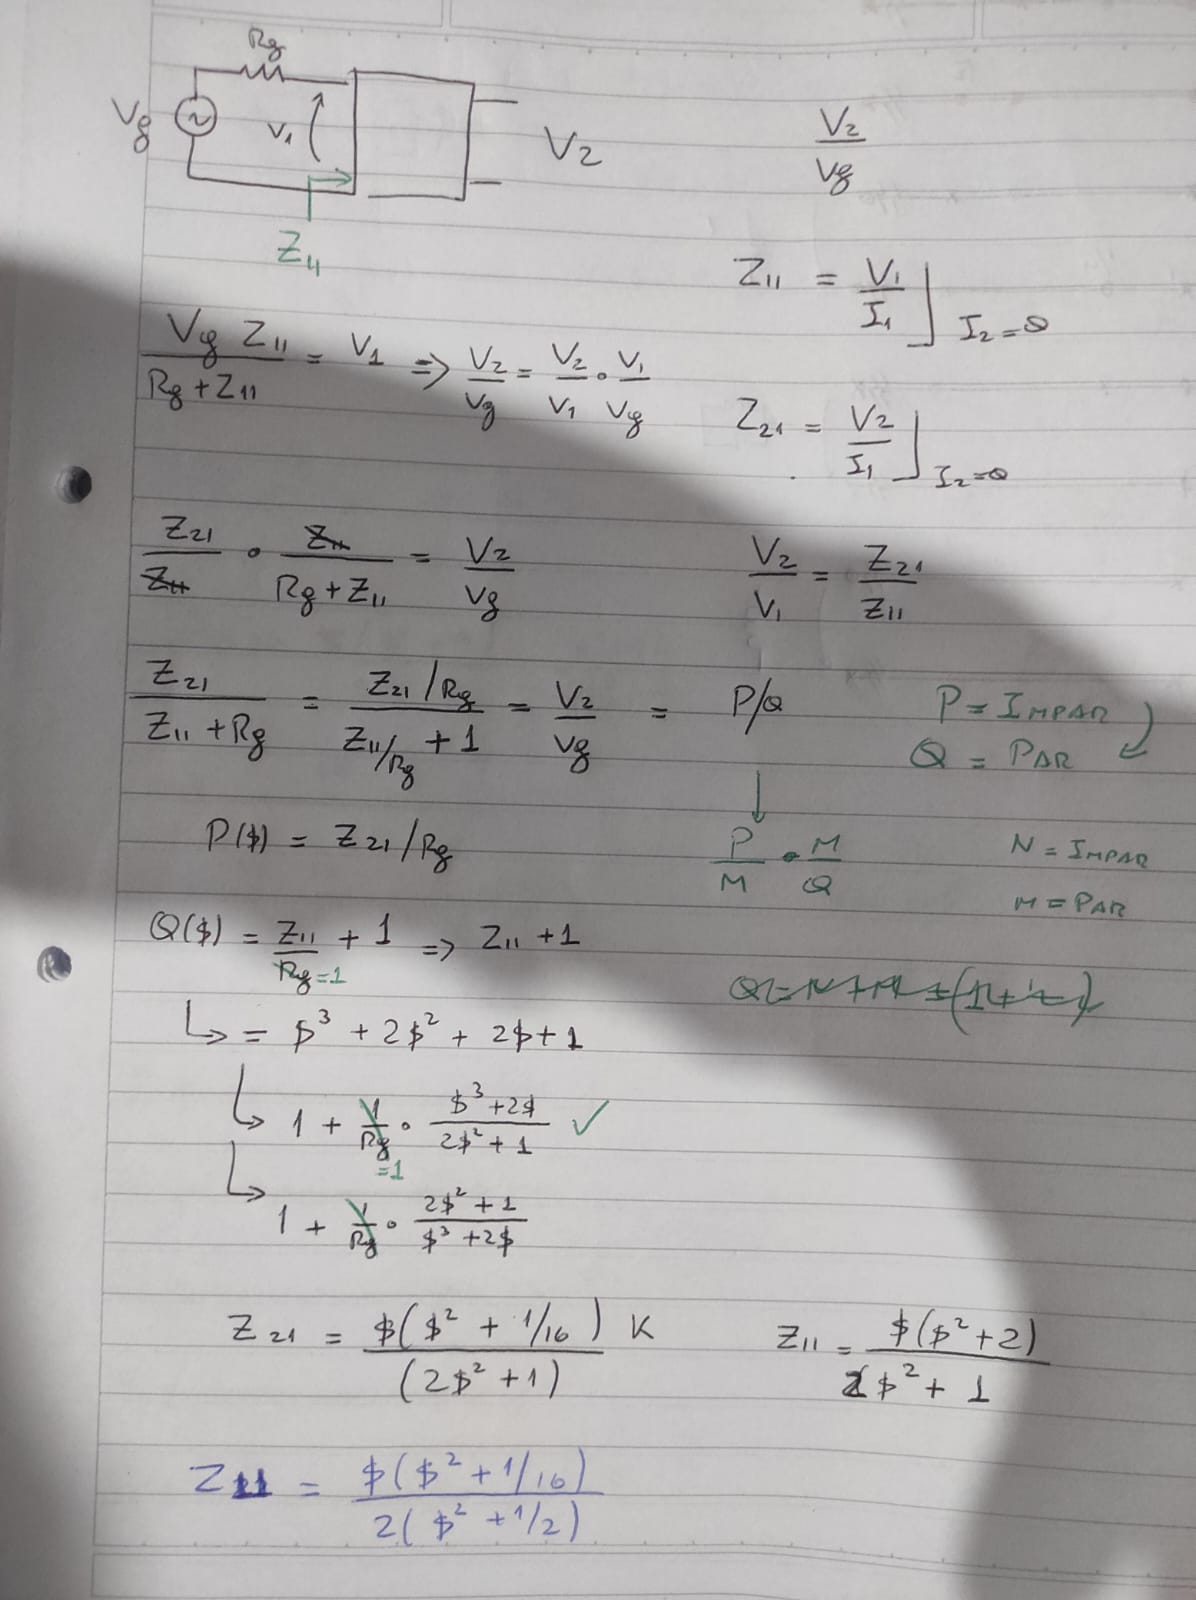 Rg
Vg
V1
V2
V2/Vg
Z11
Z11 = V1/I1 ] I2=0
Vg Z11/(Rg+Z11) = V1 ⇒ V2/Vg = V2/V1 · V1/Vg
Z21 = V2/I1 ] I2=0
Z21/Z11 · Z11/(Rg+Z11) = V2/Vg
V2/V1 = Z21/Z11
Z21/(Z11+Rg) = (Z21/Rg)/(Z11/Rg + 1) = V2/Vg = P/Q
P = IMPAR
Q = PAR
P($) = Z21/Rg
P/M · M/Q
N = IMPAR
M = PAR
Q($) = Z11/Rg + 1 ⇒ Z11 + 1
=1
↳ = $³ + 2$² + 2$ + 1
↳ 1 + 1/Rg · ($³+2$)/(2$²+1) ✓
=1
↳ 1 + 1/Rg · (2$²+1)/($³+2$)
Z21 = $($² + 1/16) K/(2$²+1)
Z11 = $($²+2)/(2$²+1)
Z11 = $($²+1/16)/2($²+1/2)